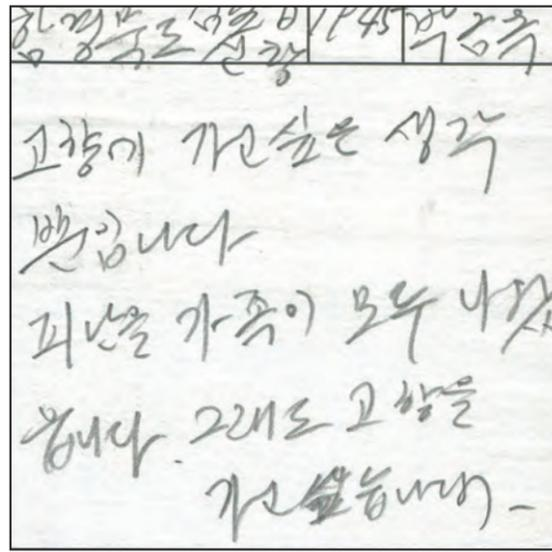 함경북도 1945 박금옥
고향에 가고싶은 생각
뿐입니다
피난을 가족이 모두 나왔
읍니다. 그래도 고향을
가고 싶습니다-